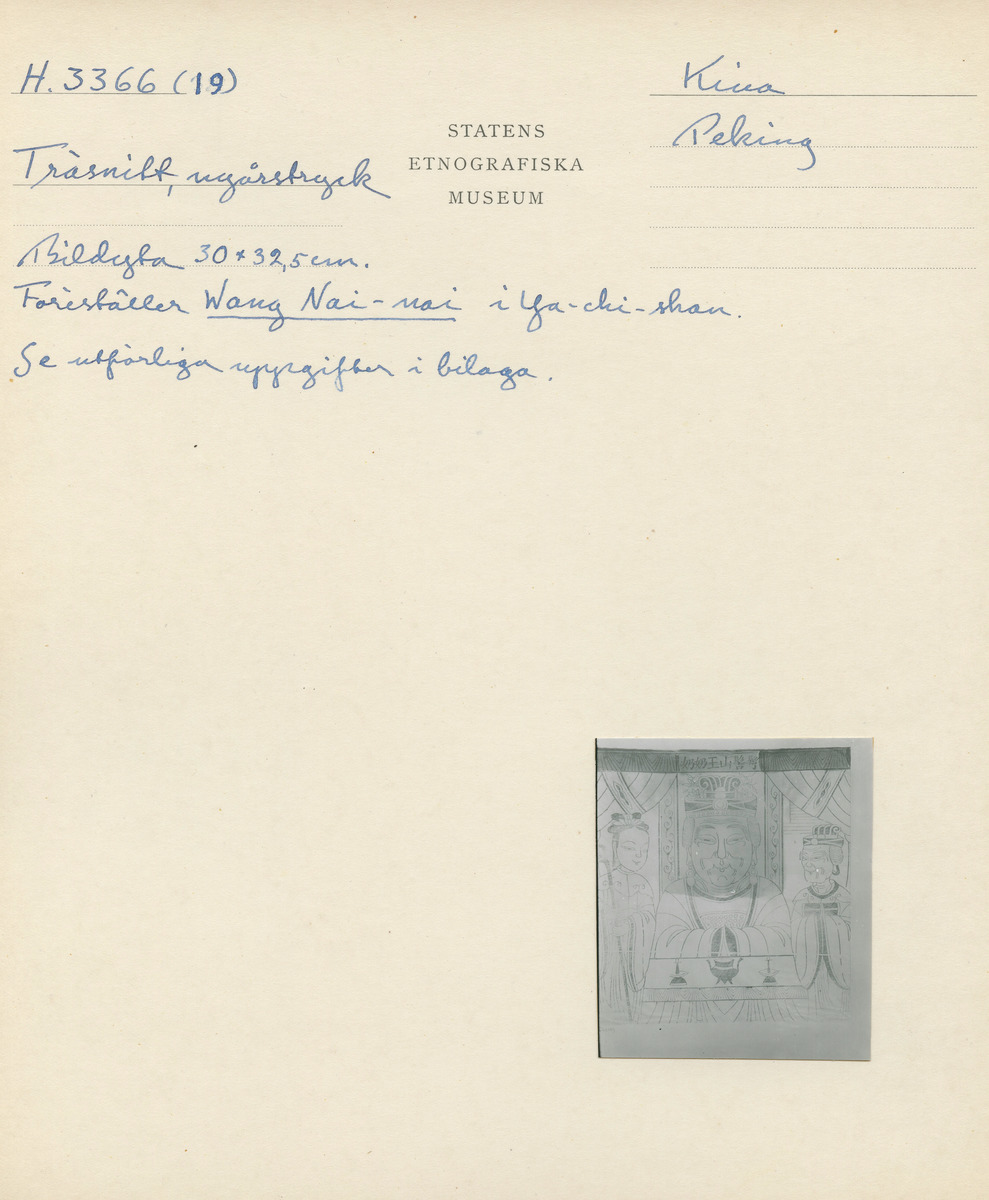 H. 3366 (19)
Kina
Peking
STATENS
ETNOGRAFISKA
MUSEUM
Träsnitt, nyårstryck
Bildyta 30 x 32,5 cm.
Föreställer Wang Nai-nai i Ya-chi-shan.
Se utförliga uppgifter i bilaga.
奶奶王山髻丫